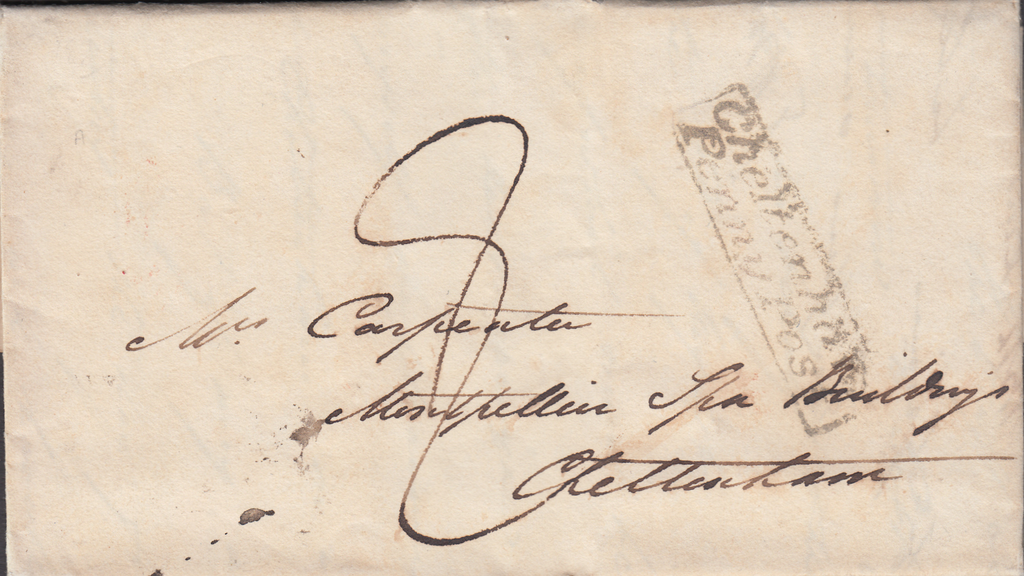 8
Cheltenham
Penny Post
Mrs Carpenter
Montpellier Spa Buildings
Cheltenham